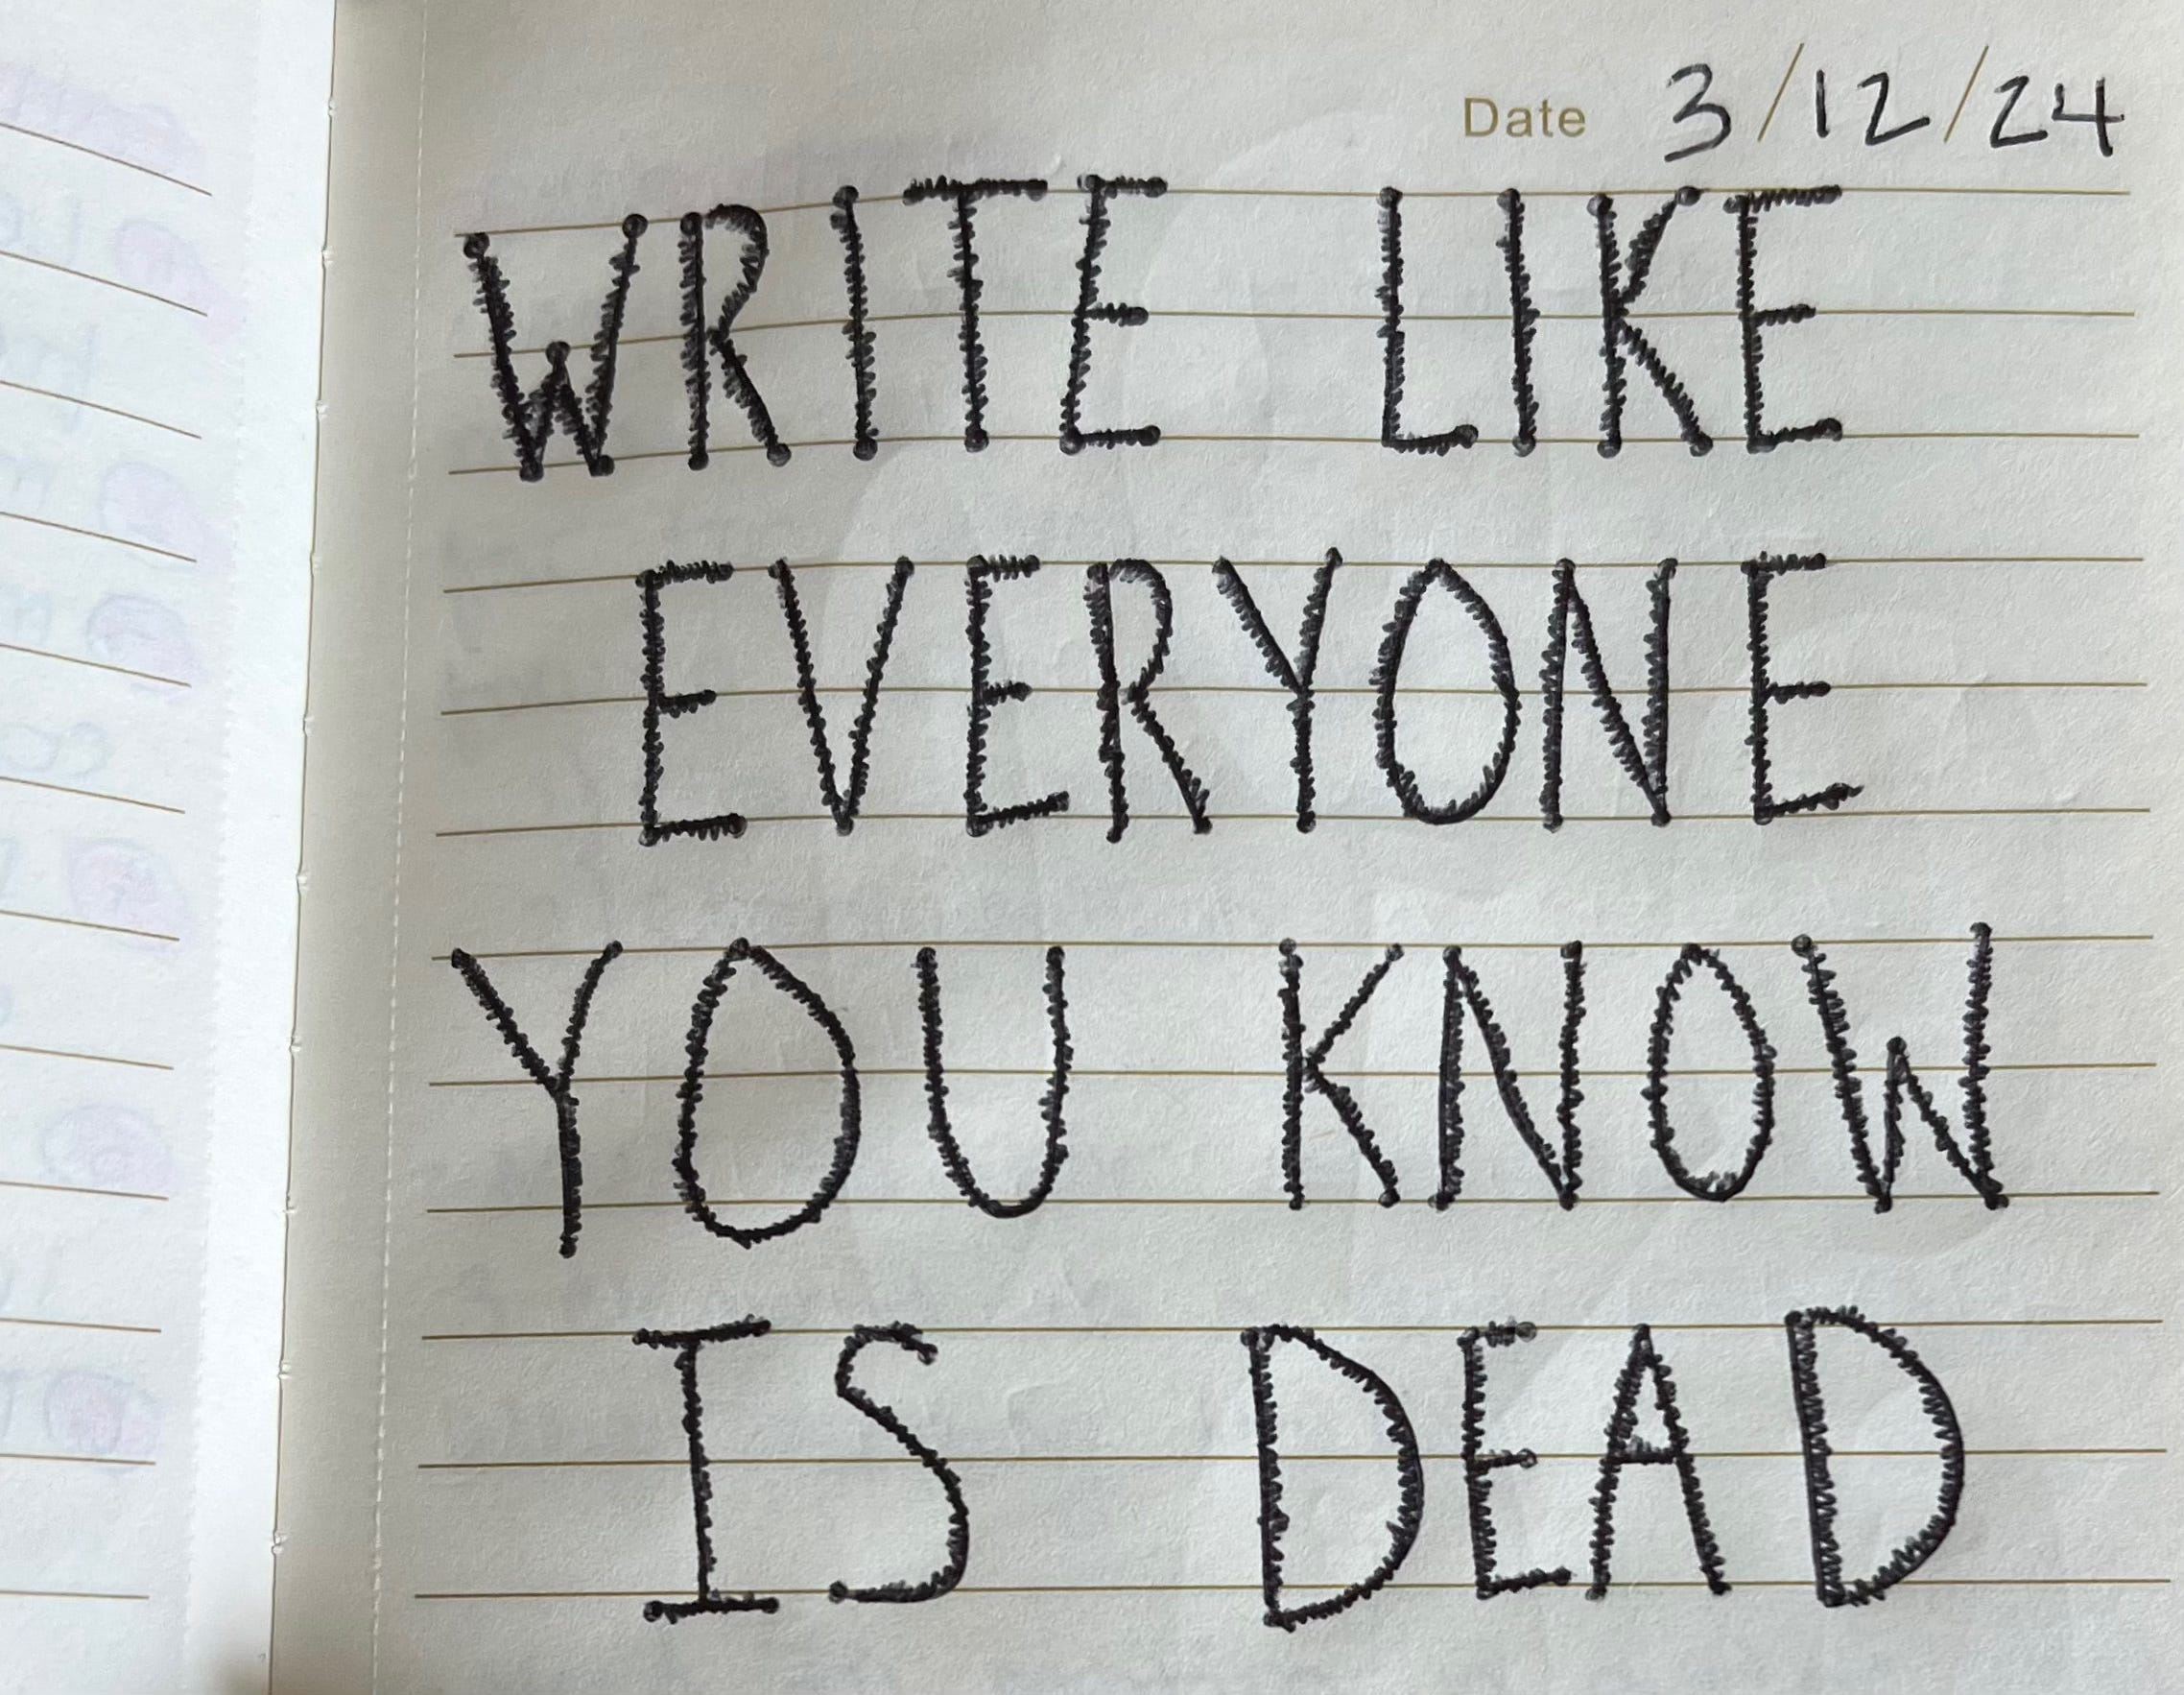 Date 3/12/24
WRITE LIKE
EVERYONE
YOU KNOW
IS DEAD